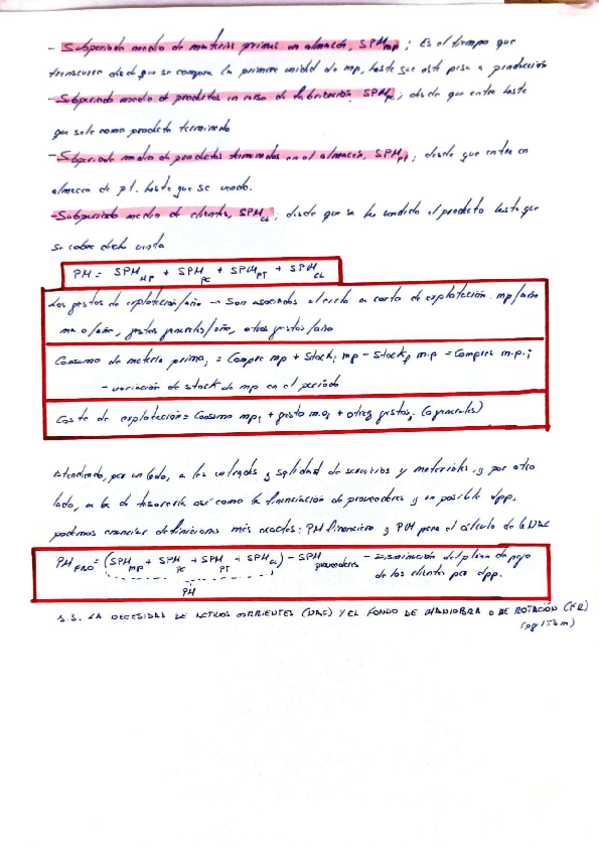 - Subperiodo medio de materias primas en almacén, SPM_mp ; Es el tiempo que
transcurre desde que se compra la primera unidad de mp, hasta que esta pasa a producción
- Subperiodo medio de productos en curso de fabricación, SPM_pc ; desde que entra hasta
que sale como producto terminado
- Subperiodo medio de productos terminados en el almacén, SPM_pt , desde que entra en
almacén de pt. hasta que se vende.
- Subperiodo medio de clientes, SPM_cl ; desde que se ha vendido el producto hasta que
se cobre dicha venta
PM = SPM_MP + SPM_PC + SPM_PT + SPM_CL
Los gastos de explotación/año → Son asociados al ciclo a corto de explotación. mp/año
m.o/año, gastos generales/año, otros gastos/año
Consumo de materia prima_i = Compra mp + Stock_i mp - Stock_f m.p = Compras m.p._i
- variación de stock de mp en el periodo
Coste de explotación = Consumo mp_i + gasto m.o_i + otros gastos_i (o generales)
Atendiendo, por un lado, a las entradas y salidas de servicios y materiales, y por otro
lado, a la de tesorería así como la financiación de proveedores y un posible dpp.
podemos enunciar definiciones más exactas: PM financiero y PM para el cálculo de la NAC
PM_FRO = (SPM_MP + SPM_PC + SPM_PT + SPM_CL) - SPM_proveedores - Disminución del plazo de pago
de los clientes por dpp.
PM
3.3. LA NECESIDAD DE ACTIVOS CORRIENTES (NAC) Y EL FONDO DE MANIOBRA O DE ROTACIÓN (FR)